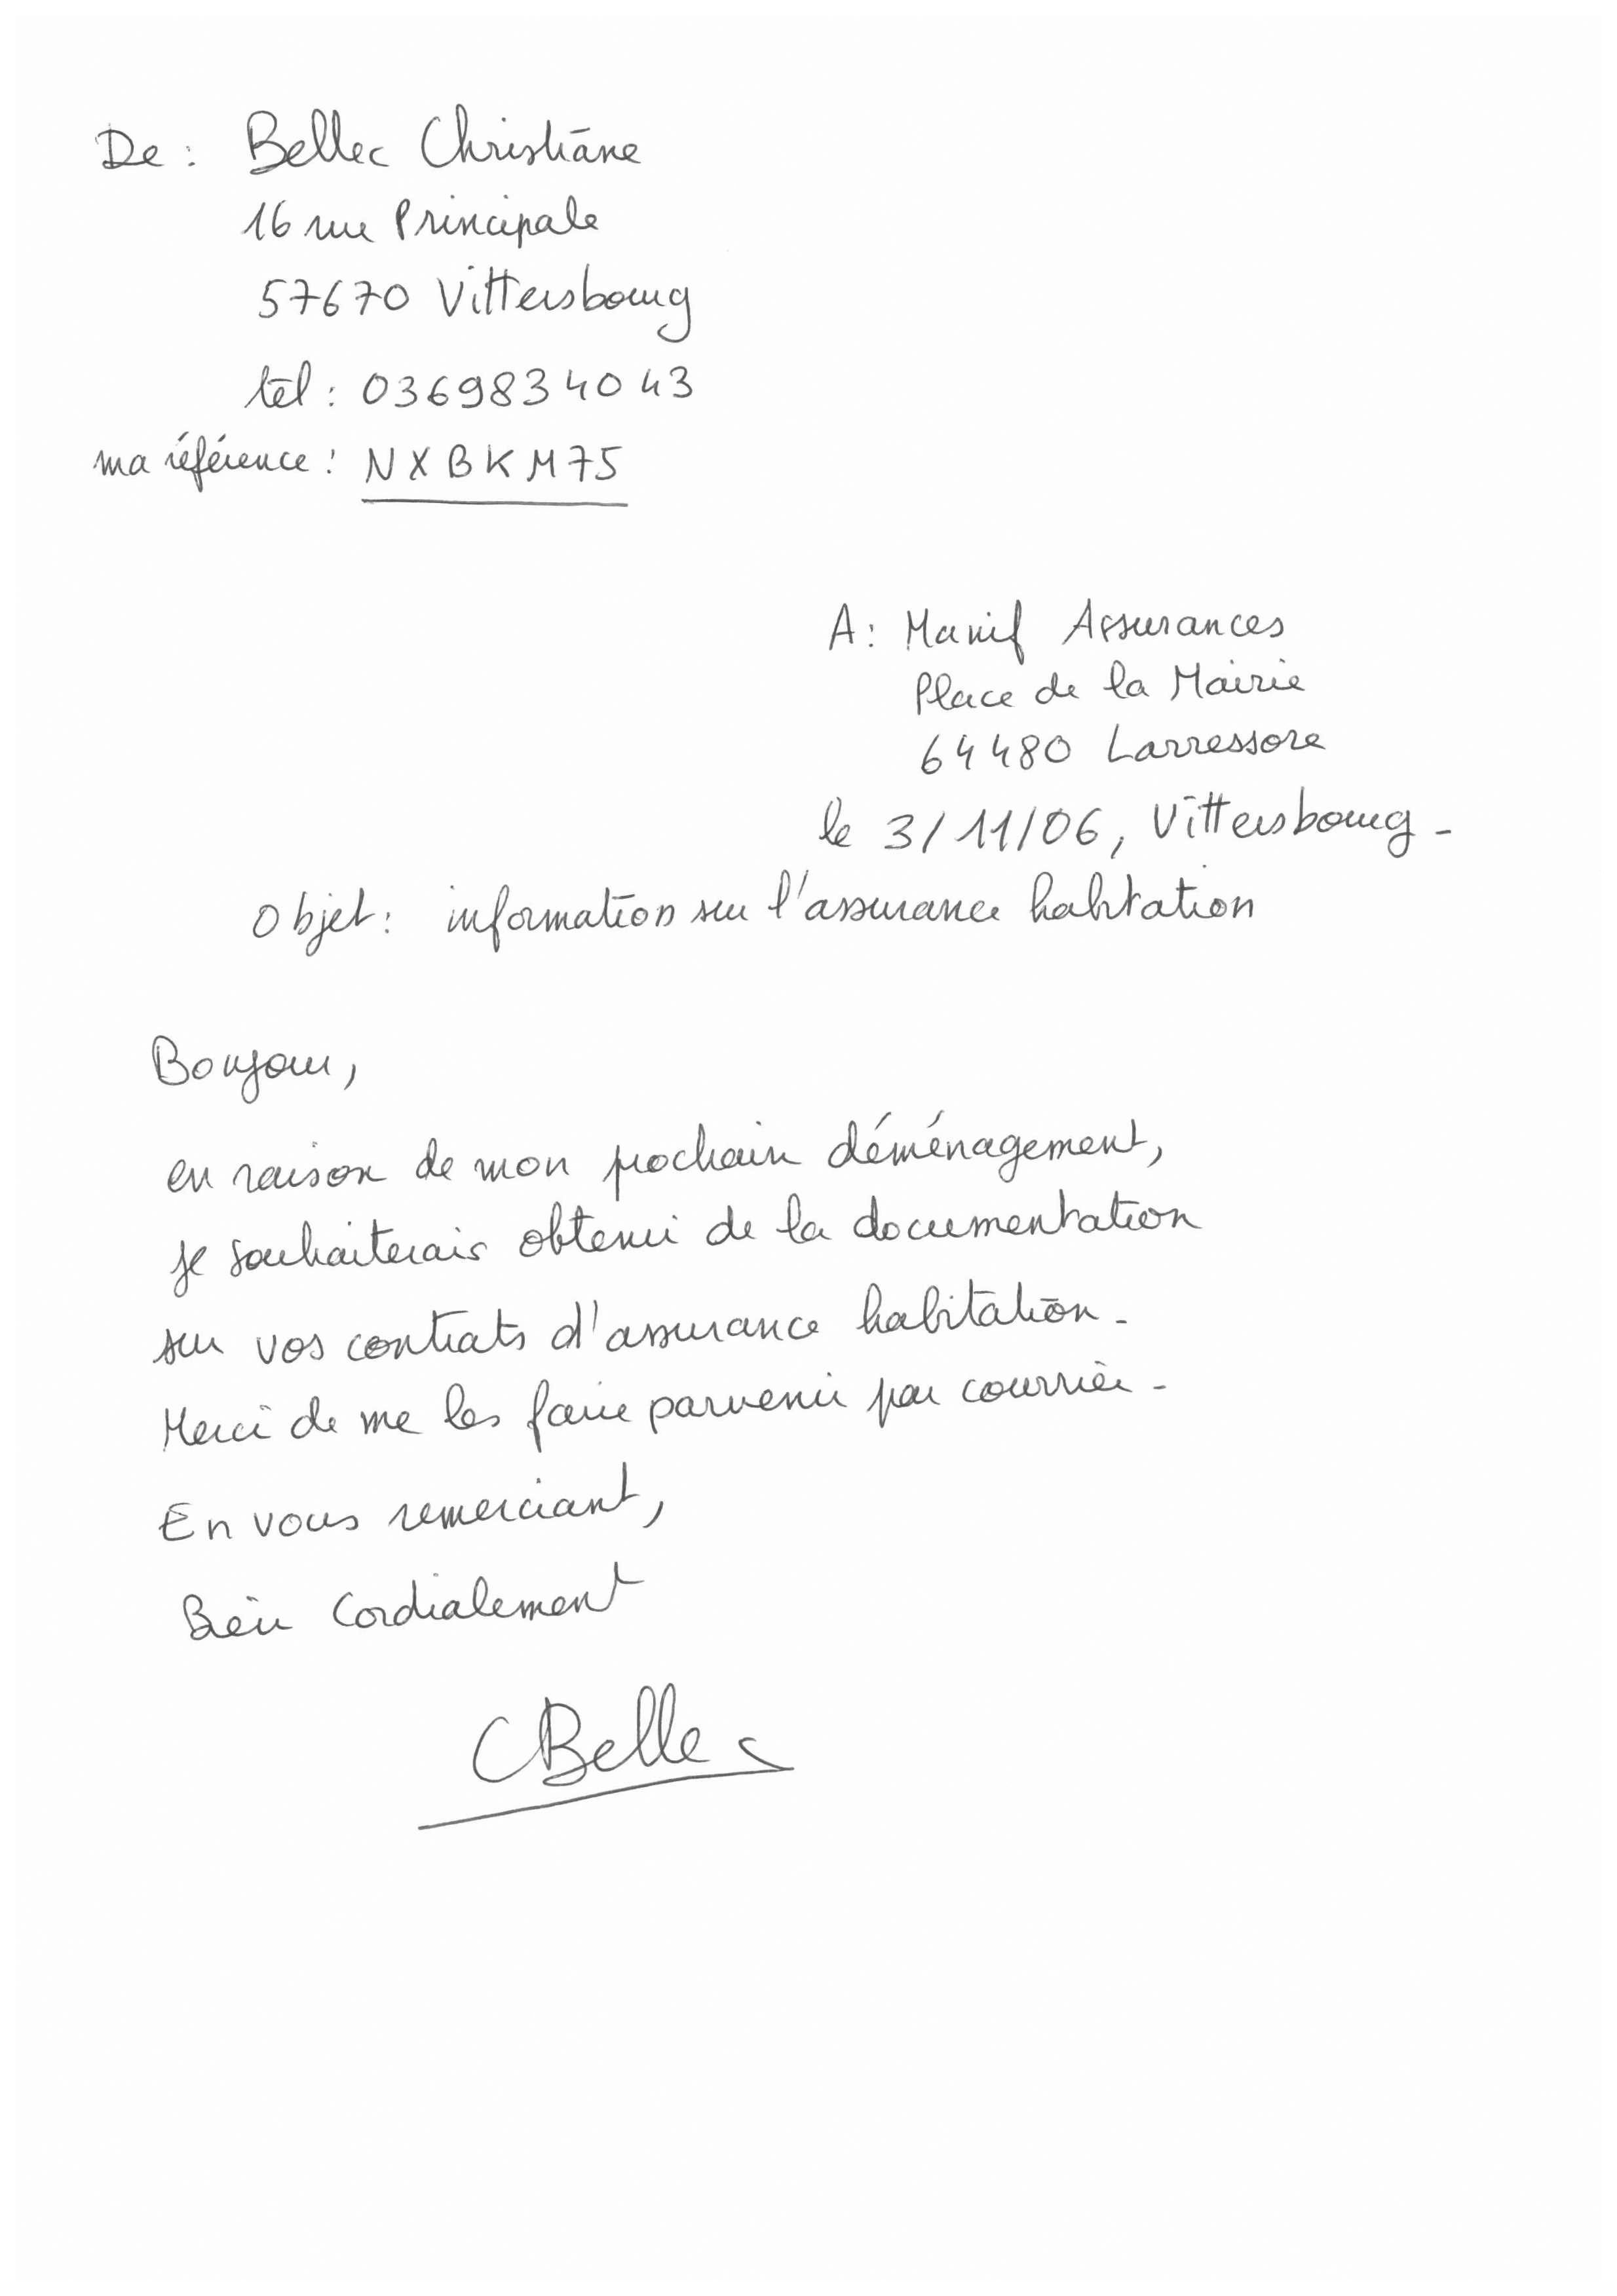 De : Bellec Christiane
16 rue Principale
57670 Vittersbourg
tél : 0369834043
ma référence : NXBKM75
A : Manif Assurances
Place de la Mairie
64480 Larressore
le 3/11/06, Vittersbourg -
Objet : information sur l'assurance habitation
Bonjour,
en raison de mon prochain déménagement,
je souhaiterais obtenir de la documentation
sur vos contrats d'assurance habitation -
Merci de me les faire parvenir par courrier -
En vous remerciant,
Bien Cordialement
CBellec